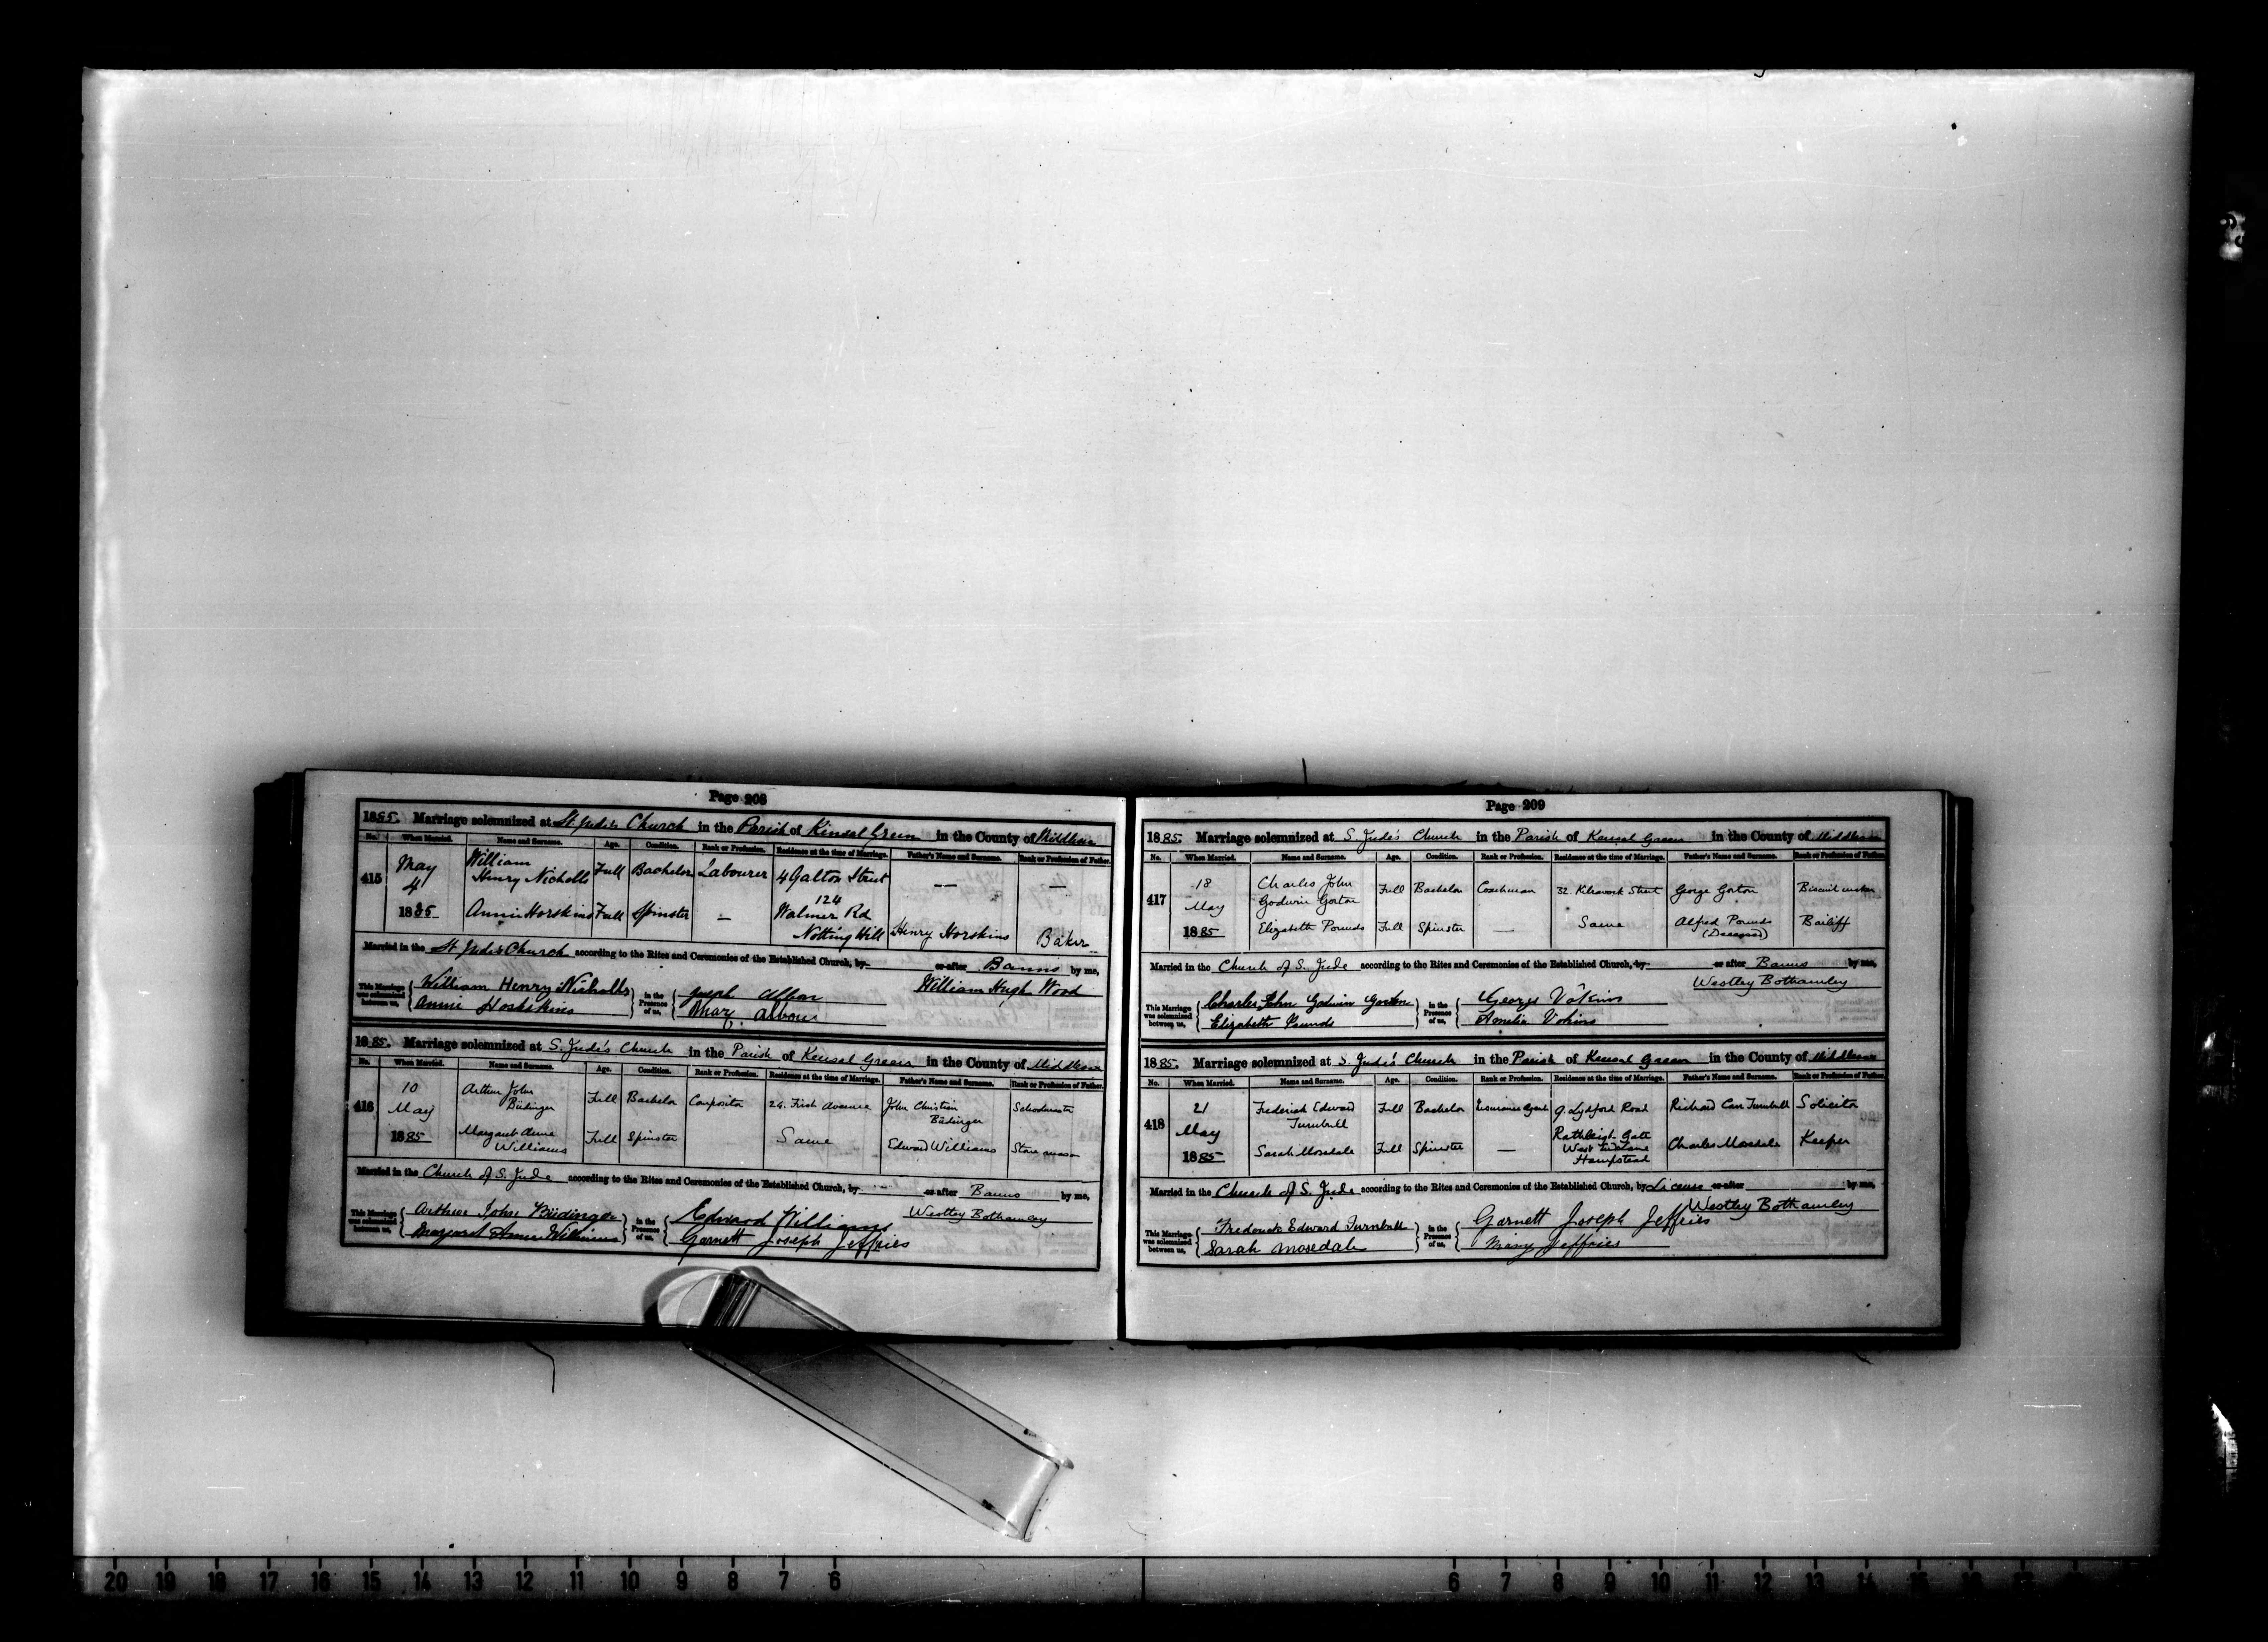 Page 208
1885. Marriage solemnized at St Jude's Church in the Parish of Kinsal Green in the County of Middlesex
No. When Married. Name and Surname. Age. Condition. Rank or Profession. Residence at the time of Marriage. Father's Name and Surname. Rank or Profession of Father.
415 May 4 1885 William Henry Nicholls Full Bachelor Labourer 4 Galton Street — —
Annie Horskins Full Spinster — 124 Walmer Rd Notting Hill Henry Horskins Baker
Married in the St Jude's Church according to the Rites and Ceremonies of the Established Church, by or after Banns by me,
William Hugh Wood
This Marriage was solemnized between us, William Henry Nicholls Annie Hoskskins in the Presence of us, Joseph Mary
1885. Marriage solemnized at S. Jude's Church in the Parish of Kensal Green in the County of Middlesex
No. When Married. Name and Surname. Age. Condition. Rank or Profession. Residence at the time of Marriage. Father's Name and Surname. Rank or Profession of Father.
416 10 May 1885 Arthur John Büdinger Full Bachelor Compositor 24. First Avenue John Christian Büdinger Schoolmaster
Margaret Anne Williams Full Spinster Same Edward Williams Stone mason
Married in the Church of S. Jude according to the Rites and Ceremonies of the Established Church, by or after Banns by me,
Westley Bothamley
This Marriage was solemnized between us, Arthur John Büdinger Margaret Anne Williams in the Presence of us, Edward Williams Garnett Joseph Jeffries
Page 209
1885. Marriage solemnized at S. Jude's Church in the Parish of Kensal Green in the County of Middlesex
No. When Married. Name and Surname. Age. Condition. Rank or Profession. Residence at the time of Marriage. Father's Name and Surname. Rank or Profession of Father.
417 18 May 1885 Charles John Godwin Gorton Full Bachelor Coachman 32. Street George Gorton Biscuit maker
Elizabeth Pounds Full Spinster — Same Alfred Pounds (Deceased) Bailiff
Married in the Church of S. Jude according to the Rites and Ceremonies of the Established Church, by or after Banns by me,
Westley Bothamley
This Marriage was solemnized between us, Charles John Godwin Gorton Elizabeth Pounds in the Presence of us, George Vokins Amelia Vokins
1885. Marriage solemnized at S. Jude's Church in the Parish of Kensal Green in the County of Middlesex
No. When Married. Name and Surname. Age. Condition. Rank or Profession. Residence at the time of Marriage. Father's Name and Surname. Rank or Profession of Father.
418 21 May 1885 Frederick Edward Turnbull Full Bachelor Insurance Agent 9. Lydford Road Richard Carr Turnbull Solicitor
Sarah Mosedale Full Spinster — Gate West End Lane Hampstead Charles Mosedale Keeper
Married in the Church of S. Jude according to the Rites and Ceremonies of the Established Church, by License or after by me,
Westley Bothamley
This Marriage was solemnized between us, Frederick Edward Turnbull Sarah Mosedale in the Presence of us, Garnett Joseph Jeffries Mary Jeffries
20 19 18 17 16 15 14 13 12 11 10 9 8 7 6 6 7 8 9 10 11 12 13 14